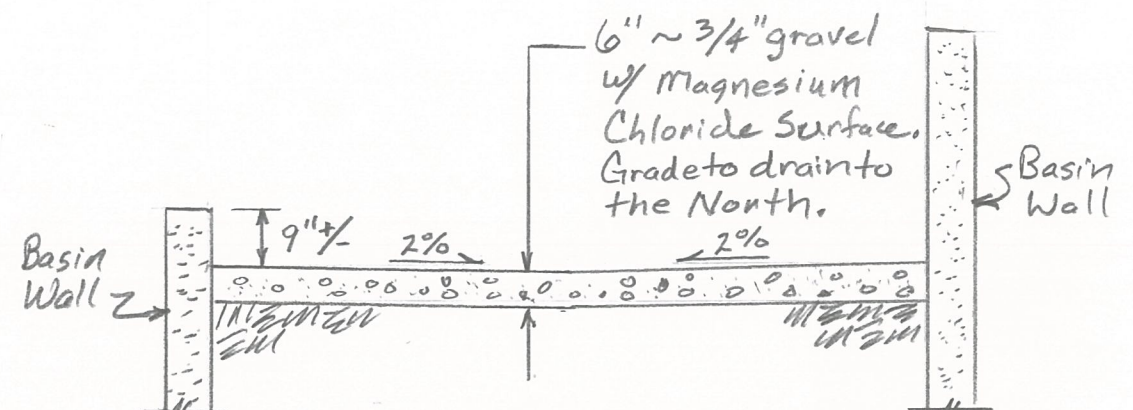 6" ~ 3/4" gravel
w/ Magnesium
Chloride Surface.
Grade to drain to
the North.
Basin
Wall
9" +/-
2%
2%
Basin
Wall